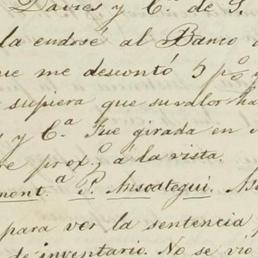 Davies y C.ª de S.
la endosé al Banco
que me descontó 5 p%
supiera que su valor ha
y C.ª Fue girada en
re prox.º á la vista.
mont.ª P. Ascategui.
para ver la sentencia
de inventario. No se vio